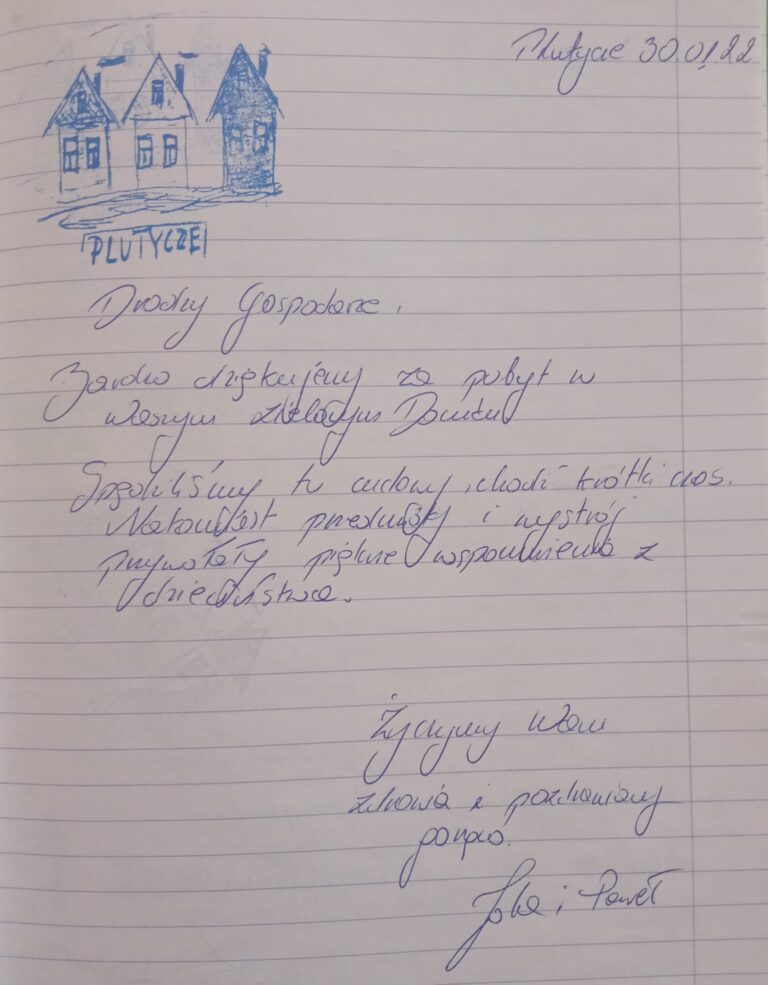 Plutycze 30.01.22
PLUTYCZE
Drodzy Gospodarze,
Bardzo dziękujemy za pobyt w
Waszym zielonym Domku
Spędziliśmy tu cudowny, choć krótki czas.
Natomiast przedmioty i wystrój
przywołały piękne wspomnienia z
dzieciństwa.
Życzymy Wam
zdrowia i pozdrawiamy
gorąco.
Jola i Paweł